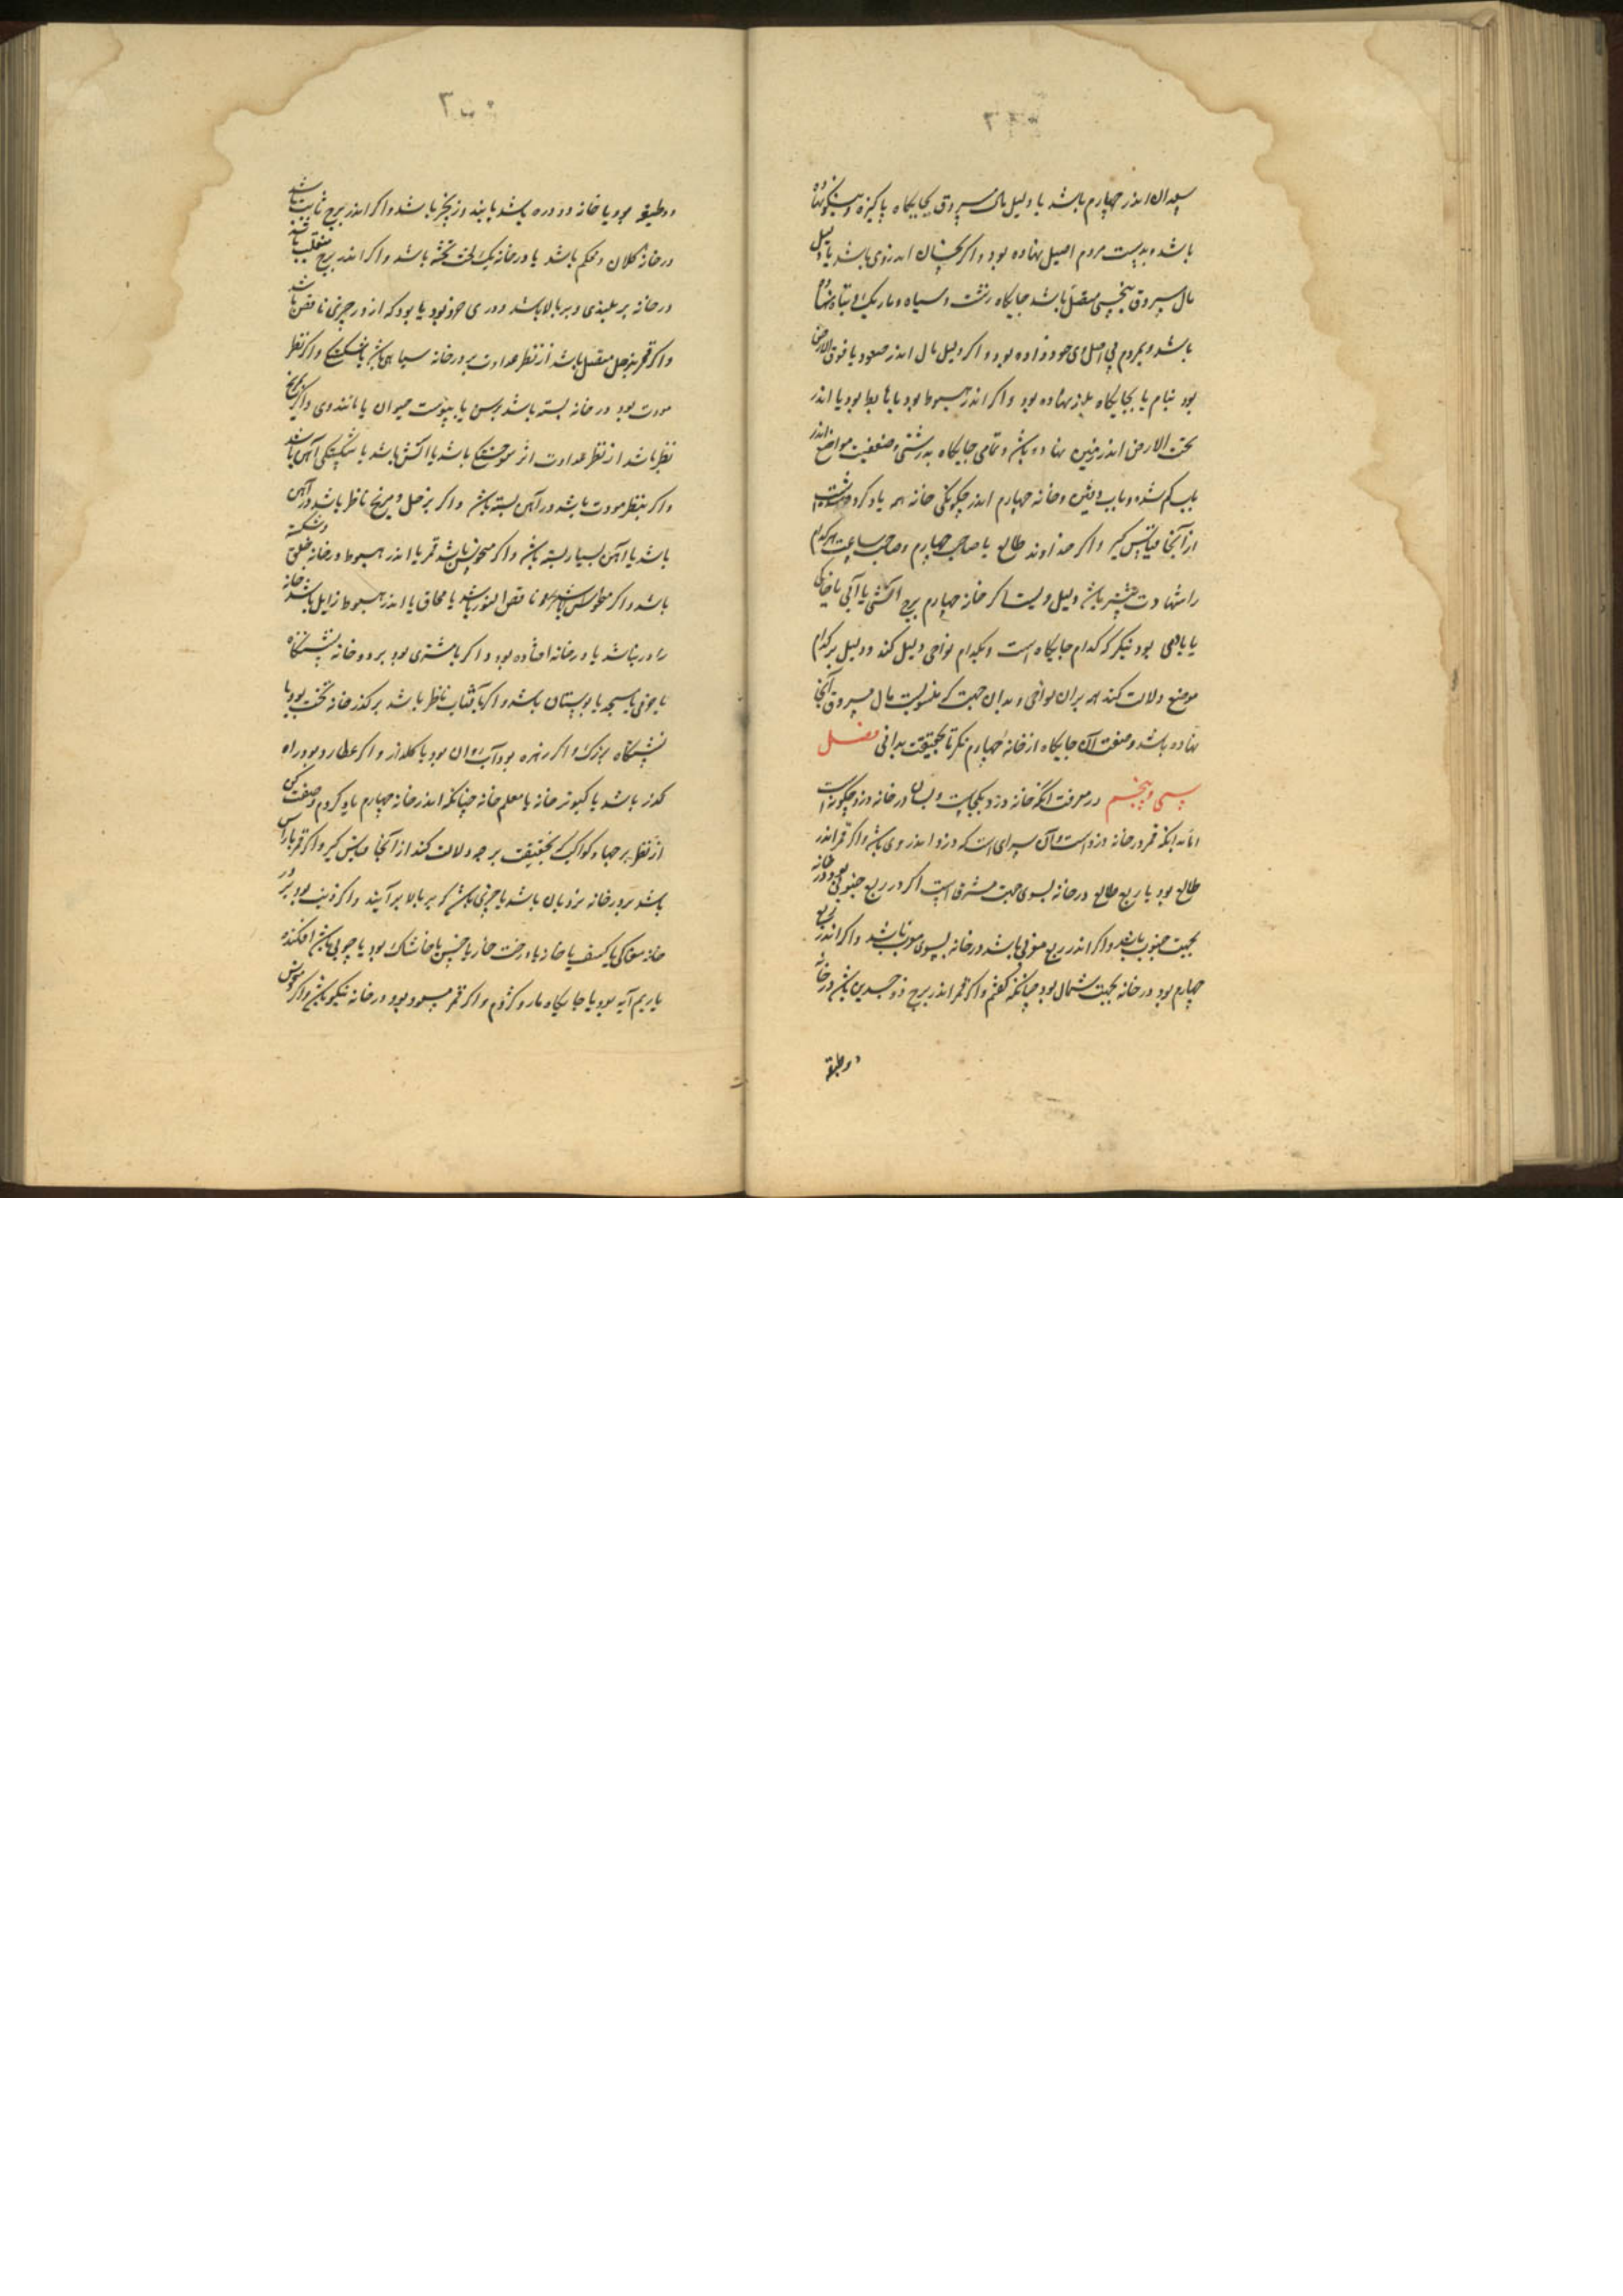 سعدان اندر چهارم باشد یا دلیل مال مسروق بجایگاه پاکیزه و نیکو نهاده
باشد و بدست مردم اصیل نهاده بود و اگر نحسان اندر وی باشد یا دلیل
مال مسروق بنحسی متصل باشد جایگاه زشت و سیاه و تاریک و تباه نهاده
باشد و بمردم بی اصل داده بود و اگر دلیل مال اندر صعود یا فوق الارض
بود ببام یا بجایگاه بلند نهاده بود و اگر اندر هبوط بود یا هابط بود یا اندر
تحت الارض اندر زمین نهاده باشد و تمامی جایگاه به زشتی و ضعیفیت مواضع اندر
باب گم شده و باب دفین و خانه چهارم اندر چگونگی خانه همه یاد کرده شده است
از آنجا قیاس گیر و اگر خداوند طالع یا صاحب چهارم و صاحب ساعت هر کدام
را شهادت بیشتر باشد دلیل ویست اگر خانه چهارم برج آتشی یا آبی یا خاکی
یا بادی بود بنگر که کدام جایگاه است و بکدام نواحی دلیل کند و دلیل بر کدام
موضع دلالت کند هم بران نواحی و بدان جهت که منسوبست مال مسروق آنجا
نهاده باشد و صفت آن جایگاه از خانه چهارم نگر تا بحقیقت بدانی فصل
سی و پنجم در معرفت آنکه خانه دزد بکجاست و بسان در خانه دزد چگونه است
اما بدانکه قمر در خانه دزد است و آن سرای است که دزد اندر وی باشد و اگر قمر اندر
طالع بود یا ربع طالع در خانه بسوی جهت مشرق است اگر در ربع جنوبی بود در خانه
بجهت جنوب باشد و اگر اندر ربع مغربی باشد در خانه بسوی مغرب باشد و اگر اندر ربع
چهارم بود در خانه بجهت شمال بود چنانکه گفتم و اگر قمر اندر برج ذو جسدین باشد در خانه
دو طبقه
دو طبقه بود یا خانه دو دره باشد یا بند و زنجیر باشد و اگر اندر برج ثابت باشد
در خانه کلان و محکم باشد یا در خانه یک لخت تخته باشد و اگر اندر برج منقلب باشد
در خانه بر بلندی و بر بالا باشد و دری خرد بود یا بود که از در چیزی ناقص باشد
و اگر قمر بزحل متصل باشد از نظر عداوت بر در خانه سیاهی باشد یا شکستگی و اگر نظر
مودت بود در خانه بسته باشد برسن یا بپوست حیوان یا مانند وی و اگر بمریخ
نظر باشد از نظر عداوت اثر سوختگی باشد یا آتش باشد یا شکستگی آهن باشد
و اگر بنظر مودت باشد در آهن بسته باشد و اگر بزحل و مریخ ناظر باشد در آهن
باشد یا آهن بسیار بسته باشد و اگر منحوس باشد قمر یا اندر هبوط در خانه خلق و شکسته
باشد و اگر ناقص النور باشد یا محاق یا اندر هبوط زایل باشد خانه
را در نباشد یا در خانه افتاده بود و اگر با مشتری بود بر در خانه نشستگاه
یا جوی یا مسجد یا بوستان باشد و اگر بآفتاب ناظر باشد بر گذر خانه تخت بود یا
نشستگاه بزرگ و اگر زهره بود آب روان بود یا گلزار و اگر عطارد بود راه
گذر باشد یا کبوتر خانه یا معلم خانه چنانکه اندر خانه چهارم یاد کردم و صفت کن
از نظر هر چهار کواکب که بحقیقت بر چه دلالت کند از آنجا قیاس گیر و اگر قمر با راس
باشد بر در خانه نردبان باشد یا چیزی باشد که بر بالا برآیند و اگر ذنب بود بر در
خانه مغاکی یا کنیف یا خانه یا درخت خار یا خس یا خاشاک بود یا چوبی باشد افکنده
یا ریم آبه بود یا جایگاه مار و کژدم و اگر قمر مسعود بود در خانه نیکو باشد و اگر منحوس